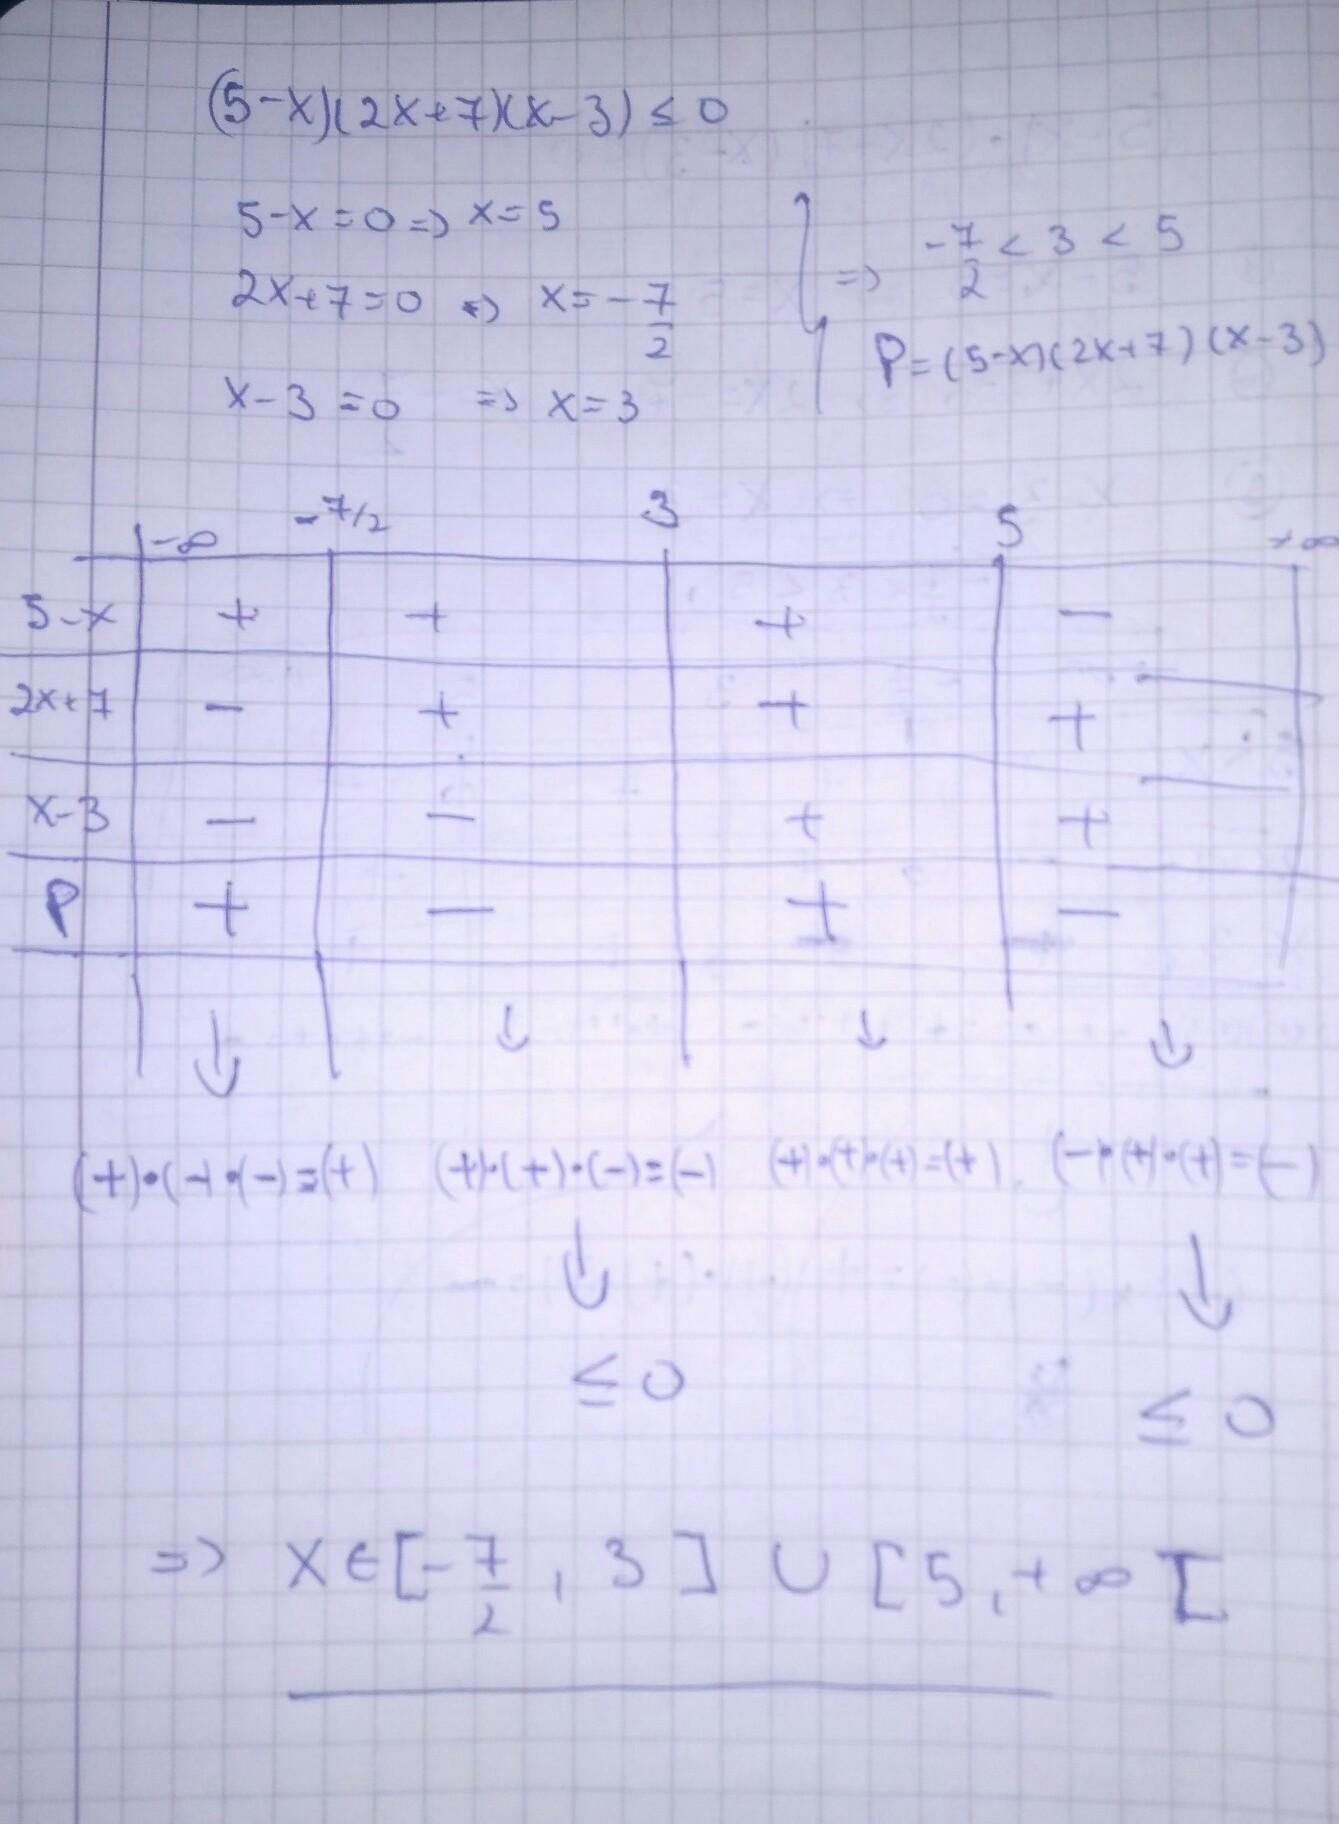 (5-x)(2x+7)(x-3) ≤ 0
5-x=0 => x=5
2x+7=0 => x=-7/2
x-3=0 => x=3
=> -7/2 < 3 < 5
P=(5-x)(2x+7)(x-3)
-∞ -7/2 3 5 +∞
5-x + + + -
2x+7 - + + +
x-3 - - + +
P + - + -
↓ ↓ ↓ ↓
(+)•(-)•(-)=(+) (+)•(+)•(-)=(-) (+)•(+)•(+)=(+) (-)•(+)•(+)=(-)
↓ ↓
≤ 0 ≤ 0
=> x∈[-7/2, 3] ∪ [5,+∞[